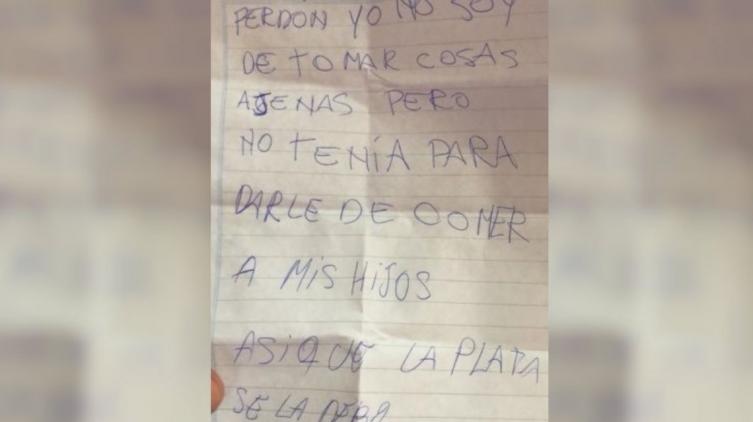 PERDON YO NO SOY
DE TOMAR COSAS
AJENAS PERO
NO TENÍA PARA
DARLE DE COMER
A MIS HIJOS
ASIQUE LA PLATA
SE LA